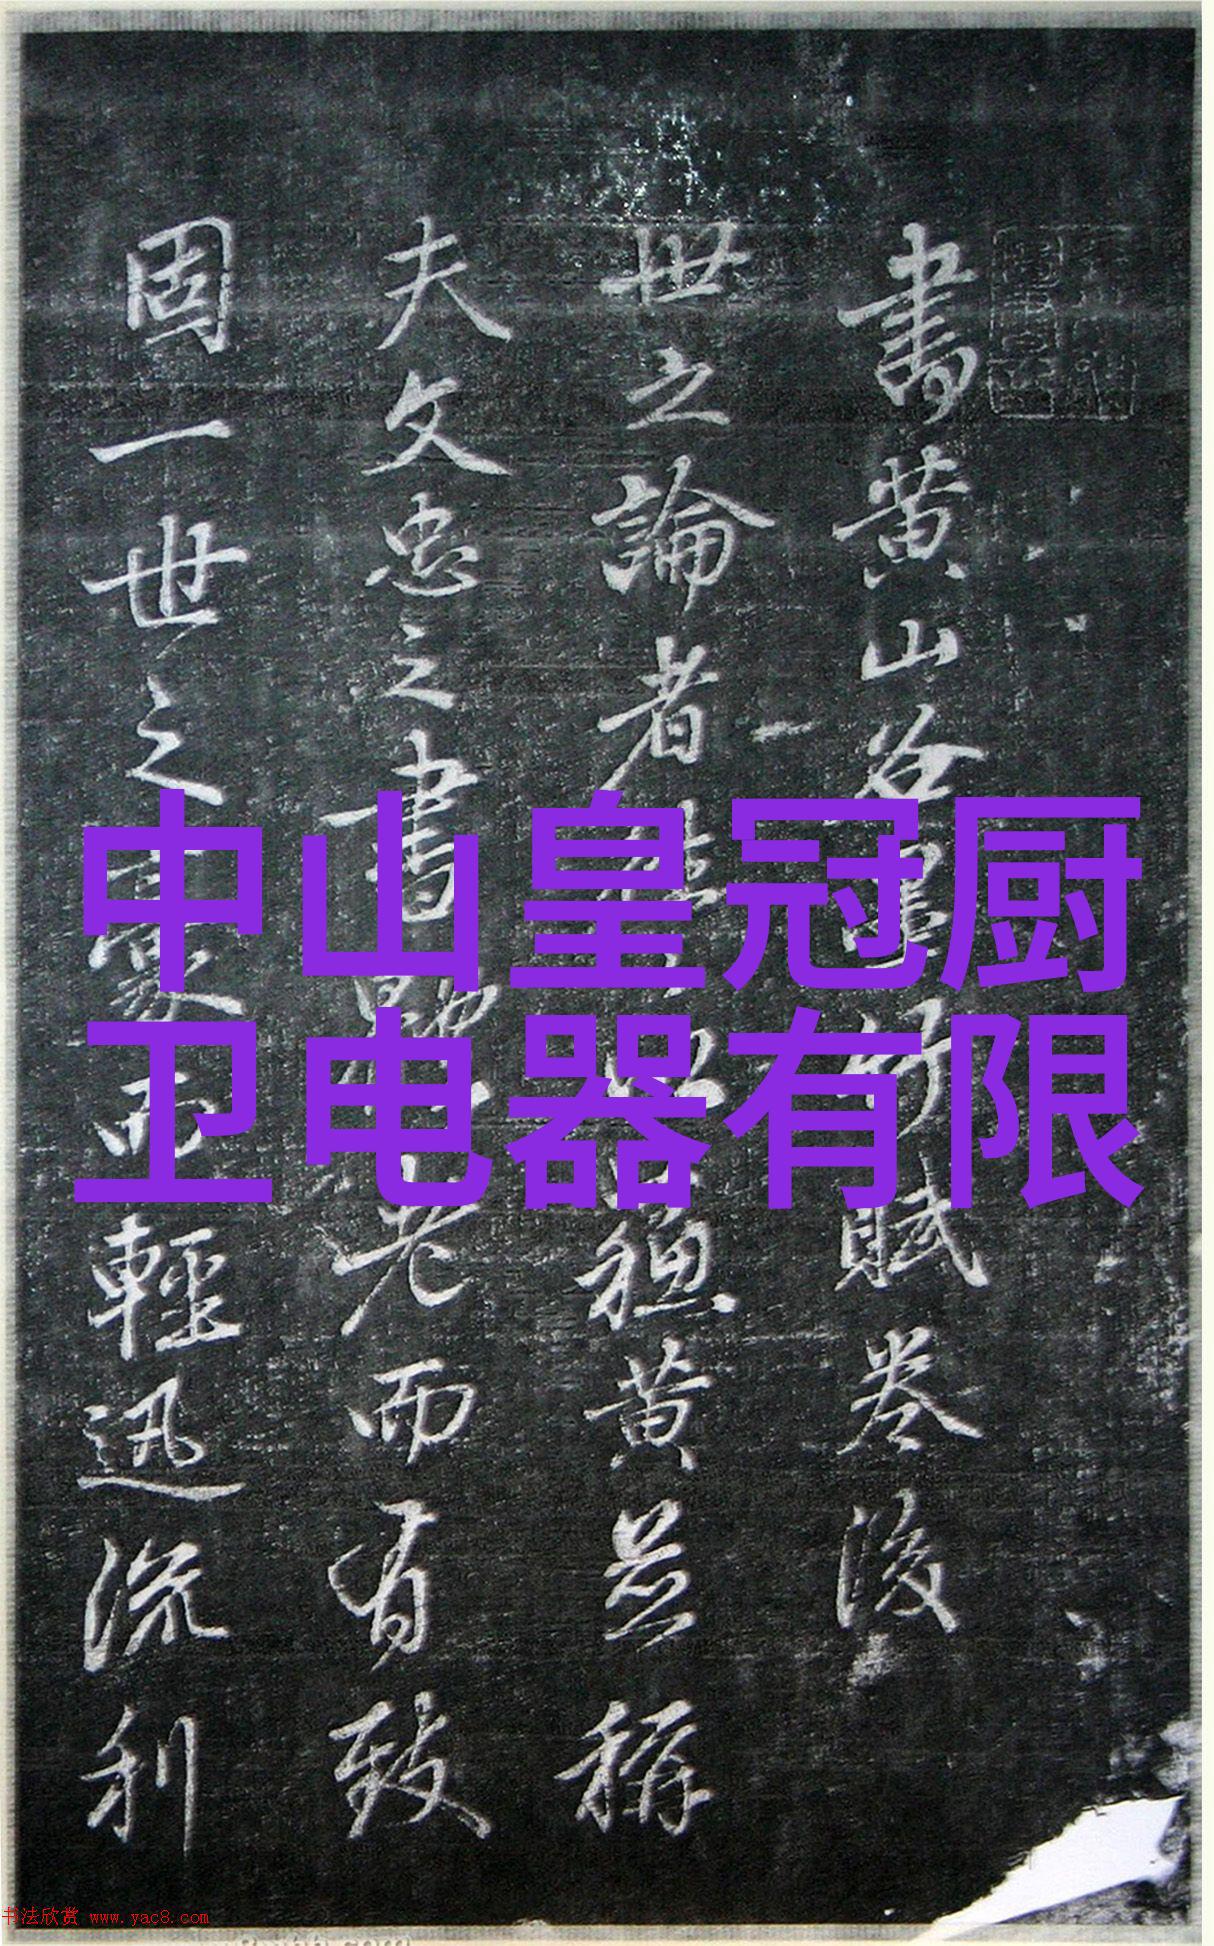 書黄山谷賦卷後
世之論者黄並稱
夫文忠之書老而有致
固一世之豪而輕迅流利
中山皇冠厨
卫电器有限
书法欣赏 www.yac8.com